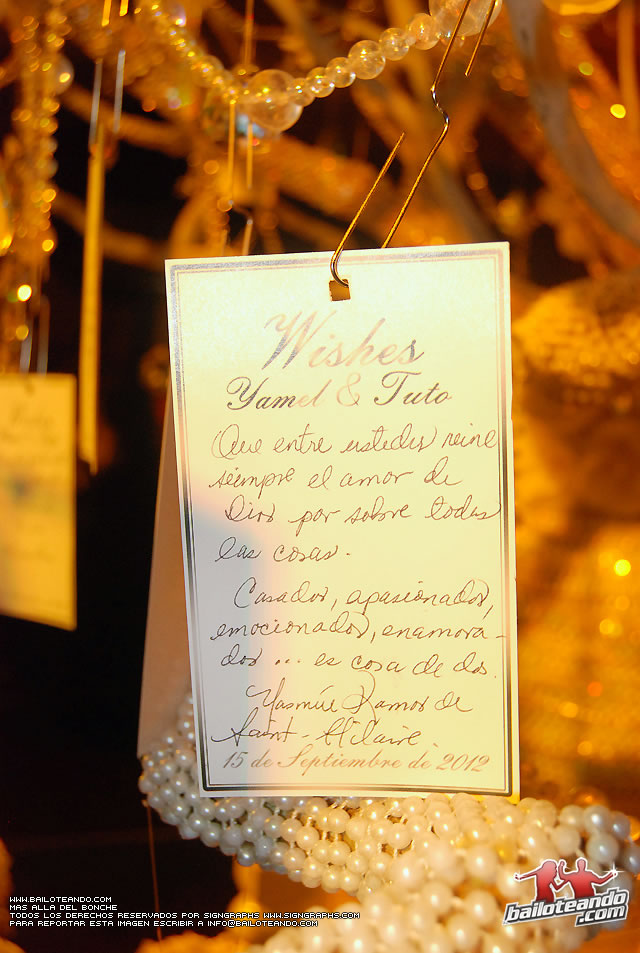 Wishes
Yamel & Tuto
Que entre ustedes reine
siempre el amor de
Dios por sobre todas
las cosas.
Casados, apasionados,
emocionados, enamora-
dos ... es cosa de dos.
Yasmín Ramos de
Saint-Hilaire.
15 de Septiembre de 2012
WWW.BAILOTEANDO.COM
MAS ALLA DEL BONCHE
TODOS LOS DERECHOS RESERVADOS POR SIGNGRAPHS WWW.SIGNGRAPHS.COM
PARA REPORTAR ESTA IMAGEN ESCRIBIR A INFO@BAILOTEANDO.COM
bailoteando
.com